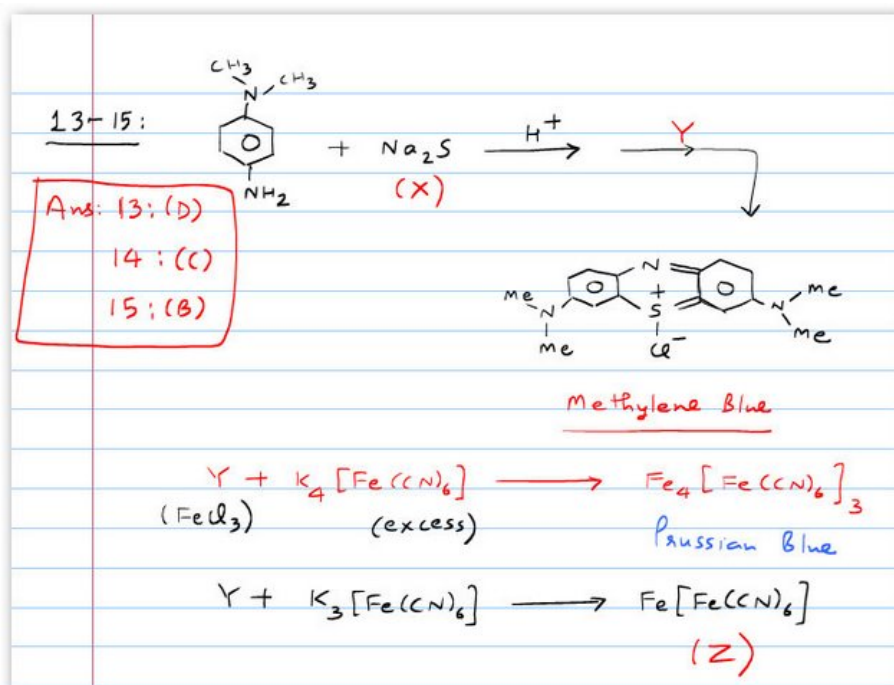 CH3
N CH3
13-15:
+ Na2S H+ Y
(X)
NH2
Ans: 13: (D)
14: (C)
15: (B)
N
Me N + N Me
S
Me Cl- Me
Methylene Blue
Y + K4[Fe(CN)6] Fe4[Fe(CN)6]3
(FeCl3) (excess)
Prussian Blue
Y + K3[Fe(CN)6] Fe[Fe(CN)6]
(Z)